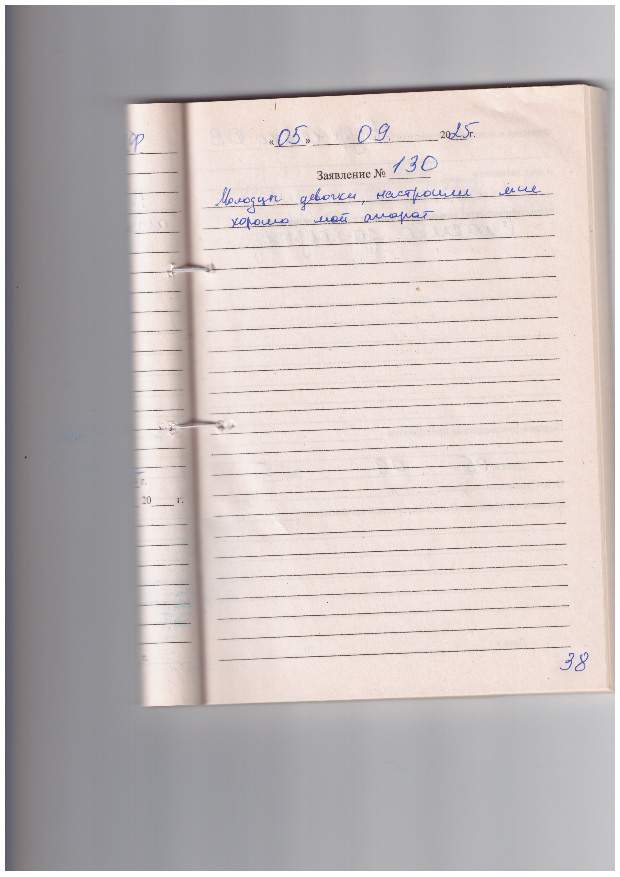 «05» 09. 2025г.
Заявление № 130
Молодцы девочки, настроили мне
хорошо мой апарат
г.
20 г.
38